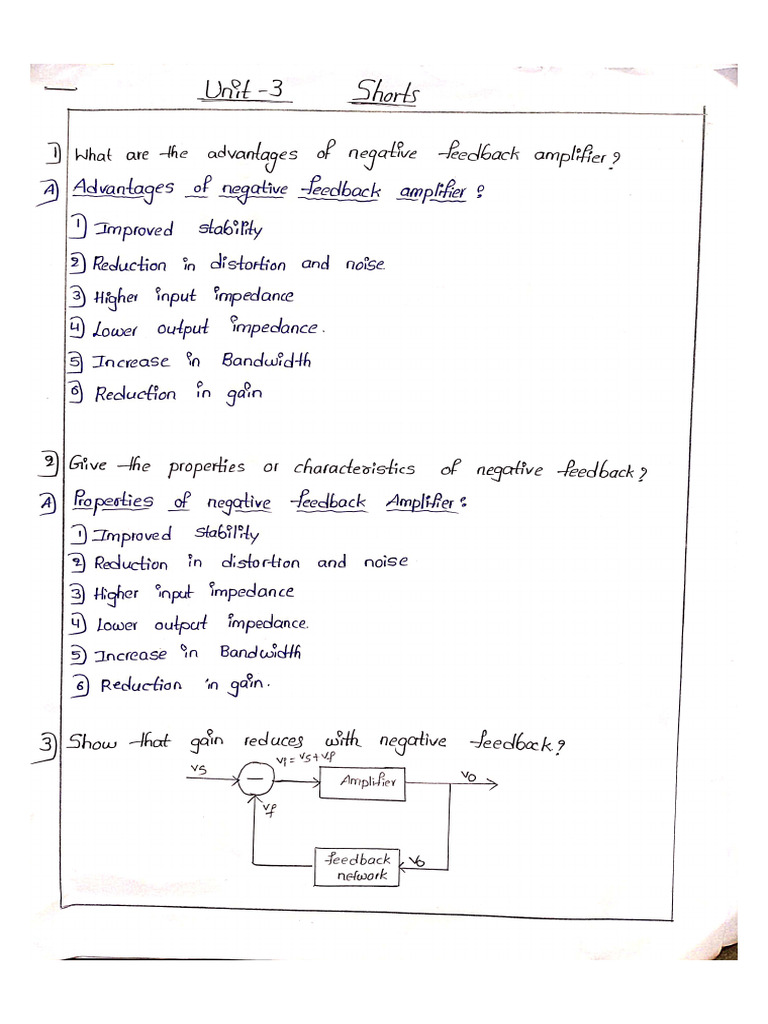 Unit-3 Shorts
1) What are the advantages of negative feedback amplifier?
A) Advantages of negative feedback amplifier:
1) Improved stability
2) Reduction in distortion and noise.
3) Higher input impedance
4) Lower output impedance.
5) Increase in Bandwidth
6) Reduction in gain
2) Give the properties or characteristics of negative feedback?
A) Properties of negative feedback Amplifier:
1) Improved stability
2) Reduction in distortion and noise
3) Higher input impedance
4) Lower output impedance.
5) Increase in Bandwidth
6) Reduction in gain.
3) Show that gain reduces with negative feedback?
vs
−
vi = vs + vf
Amplifier
vo
vf
feedback
network
vo